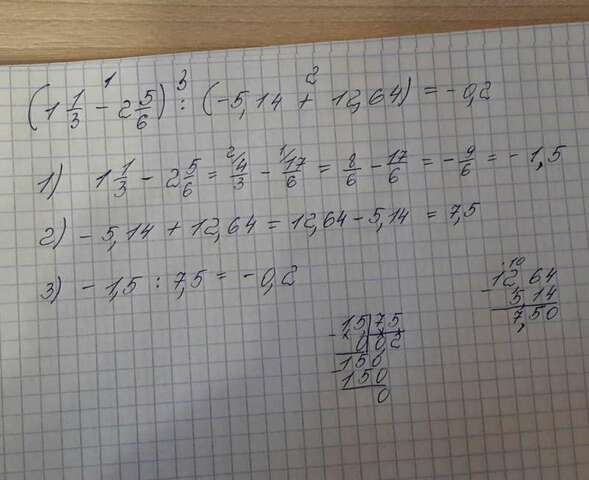 (1 1/3 - 2 5/6) : (-5,14 + 12,64) = -0,2
1 3 2
1) 1 1/3 - 2 5/6 = 4/3 - 17/6 = 8/6 - 17/6 = - 9/6 = -1,5
2 1
2) -5,14 + 12,64 = 12,64 - 5,14 = 7,5
3) -1,5 : 7,5 = -0,2
10
12,64
- 5,14
7,50
- 15 | 75
0 | 0,2
- 150
150
0